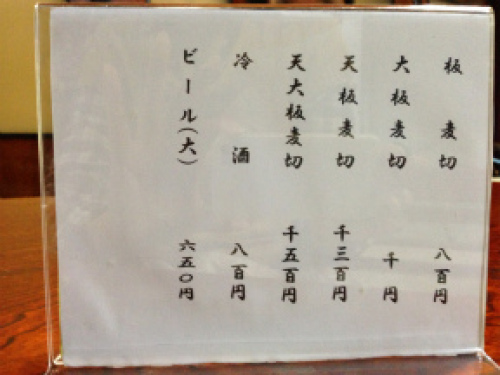 板麦切 八百円
大板麦切 千円
天板麦切 千三百円
天大板麦切 千五百円
冷酒 八百円
ビール(大) 六五〇円